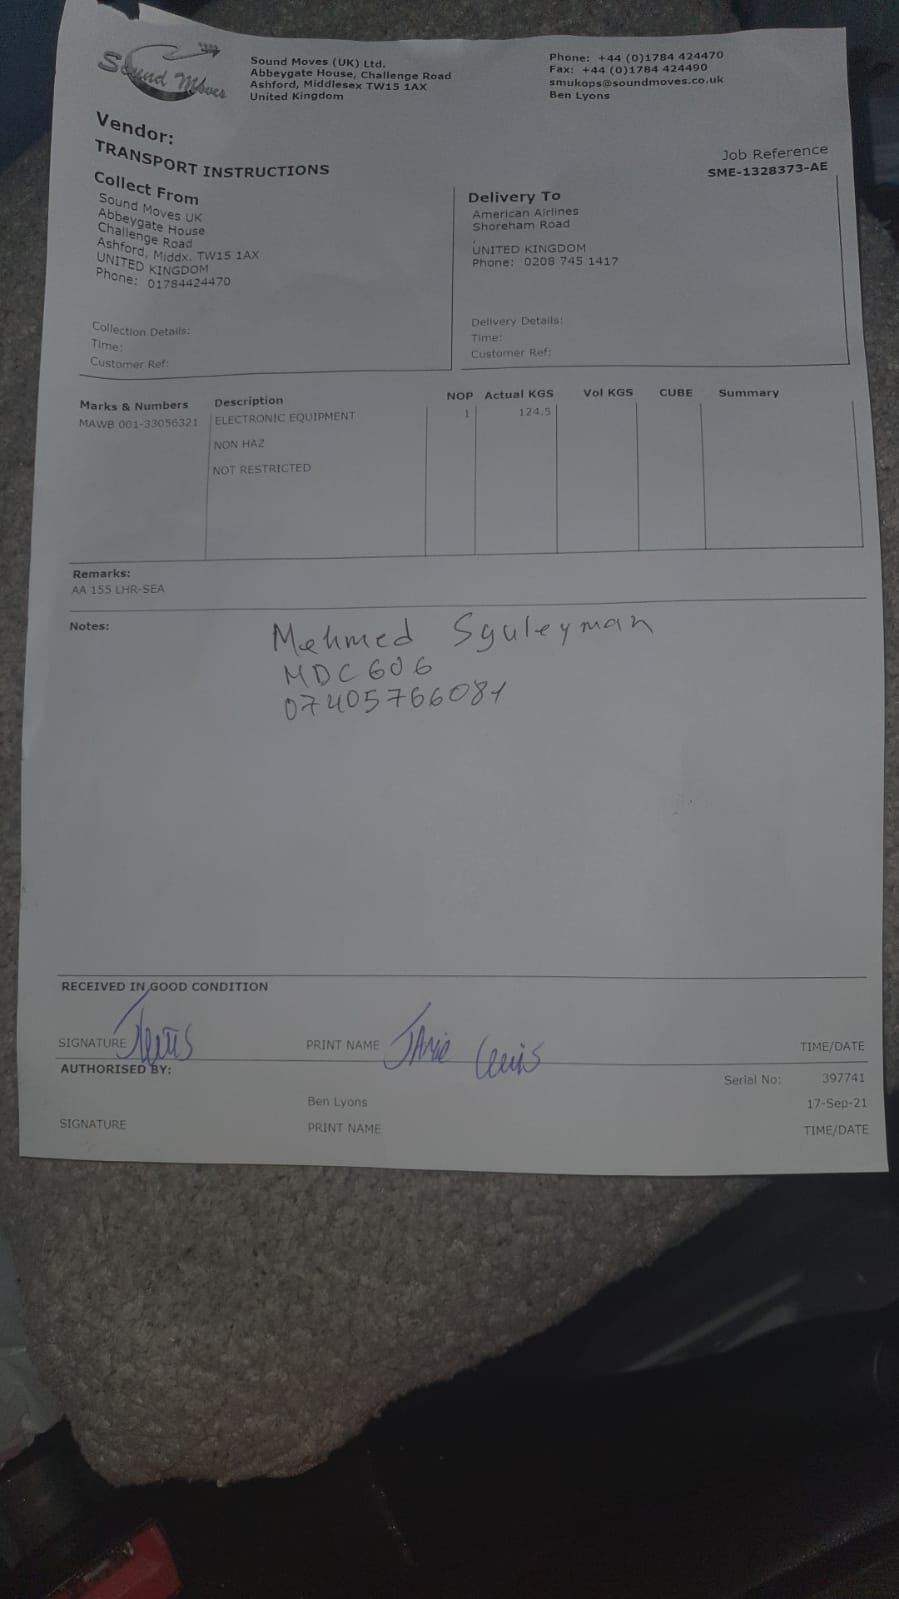 Sound Moves
Sound Moves (UK) Ltd.
Abbeygate House, Challenge Road
Ashford, Middlesex TW15 1AX
United Kingdom
Phone: +44 (0)1784 424470
Fax: +44 (0)1784 424490
smukops@soundmoves.co.uk
Ben Lyons
Vendor:
TRANSPORT INSTRUCTIONS
Job Reference
SME-1328373-AE
Collect From
Sound Moves UK
Abbeygate House
Challenge Road
Ashford, Middx. TW15 1AX
UNITED KINGDOM
Phone: 01784424470
Collection Details:
Time:
Customer Ref:
Delivery To
American Airlines
Shoreham Road
.
UNITED KINGDOM
Phone: 0208 745 1417
Delivery Details:
Time:
Customer Ref:
Marks & Numbers Description NOP Actual KGS Vol KGS CUBE Summary
MAWB 001-33056321 ELECTRONIC EQUIPMENT 1 124.5
NON HAZ
NOT RESTRICTED
Remarks:
AA 155 LHR-SEA
Notes:
Mehmed Syuleyman
MDC606
07405766081
RECEIVED IN GOOD CONDITION
SIGNATURE PRINT NAME Jamie Lewis TIME/DATE
AUTHORISED BY:
Serial No: 397741
Ben Lyons 17-Sep-21
SIGNATURE PRINT NAME TIME/DATE